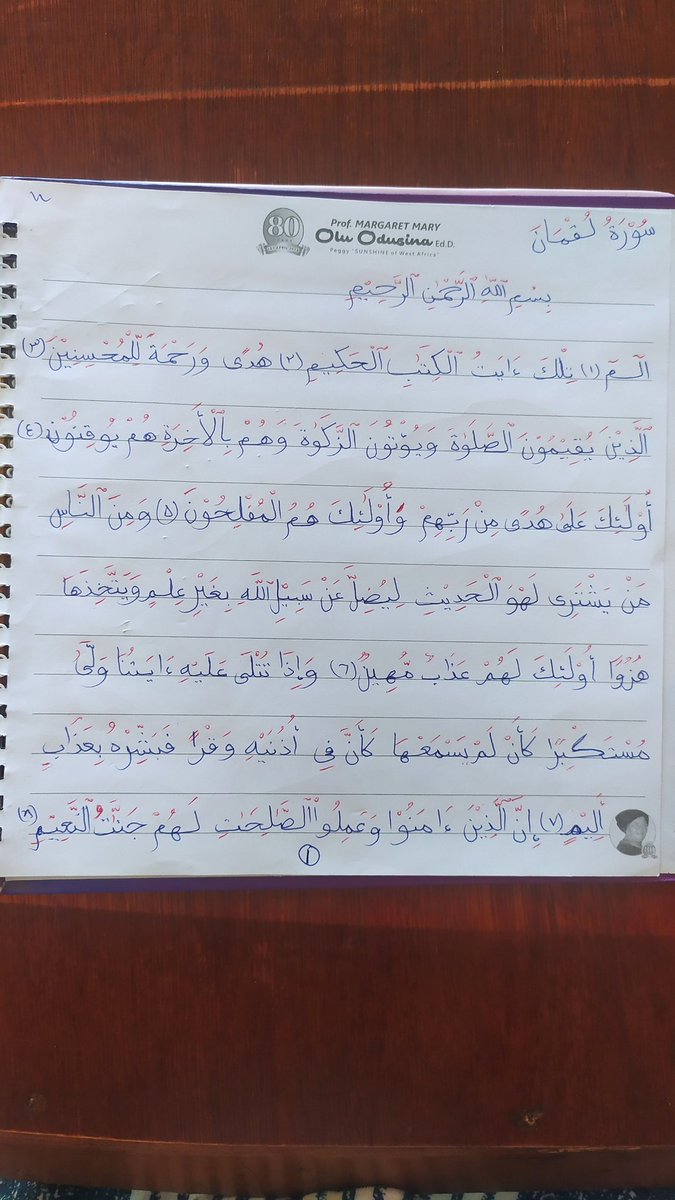 80
Prof. MARGARET MARY
Olu Odusina Ed.D.
Peggy "SUNSHINE of West Africa"
سُوْرَةُ لُقْمَانَ
بِسْمِ ٱللَّهِ ٱلرَّحْمَٰنِ ٱلرَّحِيْمِ
الٓـمٓ (١) تِلْكَ ءَايَٰتُ ٱلْكِتَٰبِ ٱلْحَكِيمِ (٢) هُدًى وَرَحْمَةً لِّلْمُحْسِنِيْنَ (٣)
ٱلَّذِيْنَ يُقِيْمُوْنَ ٱلصَّلَوٰةَ وَيُؤْتُونَ ٱلزَّكَوٰةَ وَهُمْ بِٱلْأَخِرَةِ هُمْ يُوْقِنُوْنَ (٤)
أُوْلَٰئِكَ عَلَىٰ هُدًى مِنْ رَبِّهِمْ وَأُوْلَٰئِكَ هُمُ الْمُفْلِحُوْنَ (٥) وَمِنَ ٱلنَّاسِ
مَنْ يَشْتَرِى لَهْوَ ٱلْحَدِيْثِ لِيُضِلَّ عَنْ سَبِيْلِ ٱللَّهِ بِغَيْرِ عِلْمٍ وَيَتَّخِذَهَا
هُزُوًا أُوْلَٰئِكَ لَهُمْ عَذَابٌ مُّهِيْنٌ (٦) وَإِذَا تُتْلَىٰ عَلَيْهِ ءَايَٰتُنَا وَلَّىٰ
مُسْتَكْبِرًا كَأَنْ لَمْ يَسْمَعْهَا كَأَنَّ فِى أُذُنَيْهِ وَقْرًا فَبَشِّرْهُ بِعَذَابٍ
أَلِيْمٍ (٧) إِنَّ ٱلَّذِيْنَ ءَامَنُوْا وَعَمِلُوا ٱلصَّٰلِحَٰتِ لَهُمْ جَنَّٰتُ ٱلنَّعِيْمِ (٨)
١